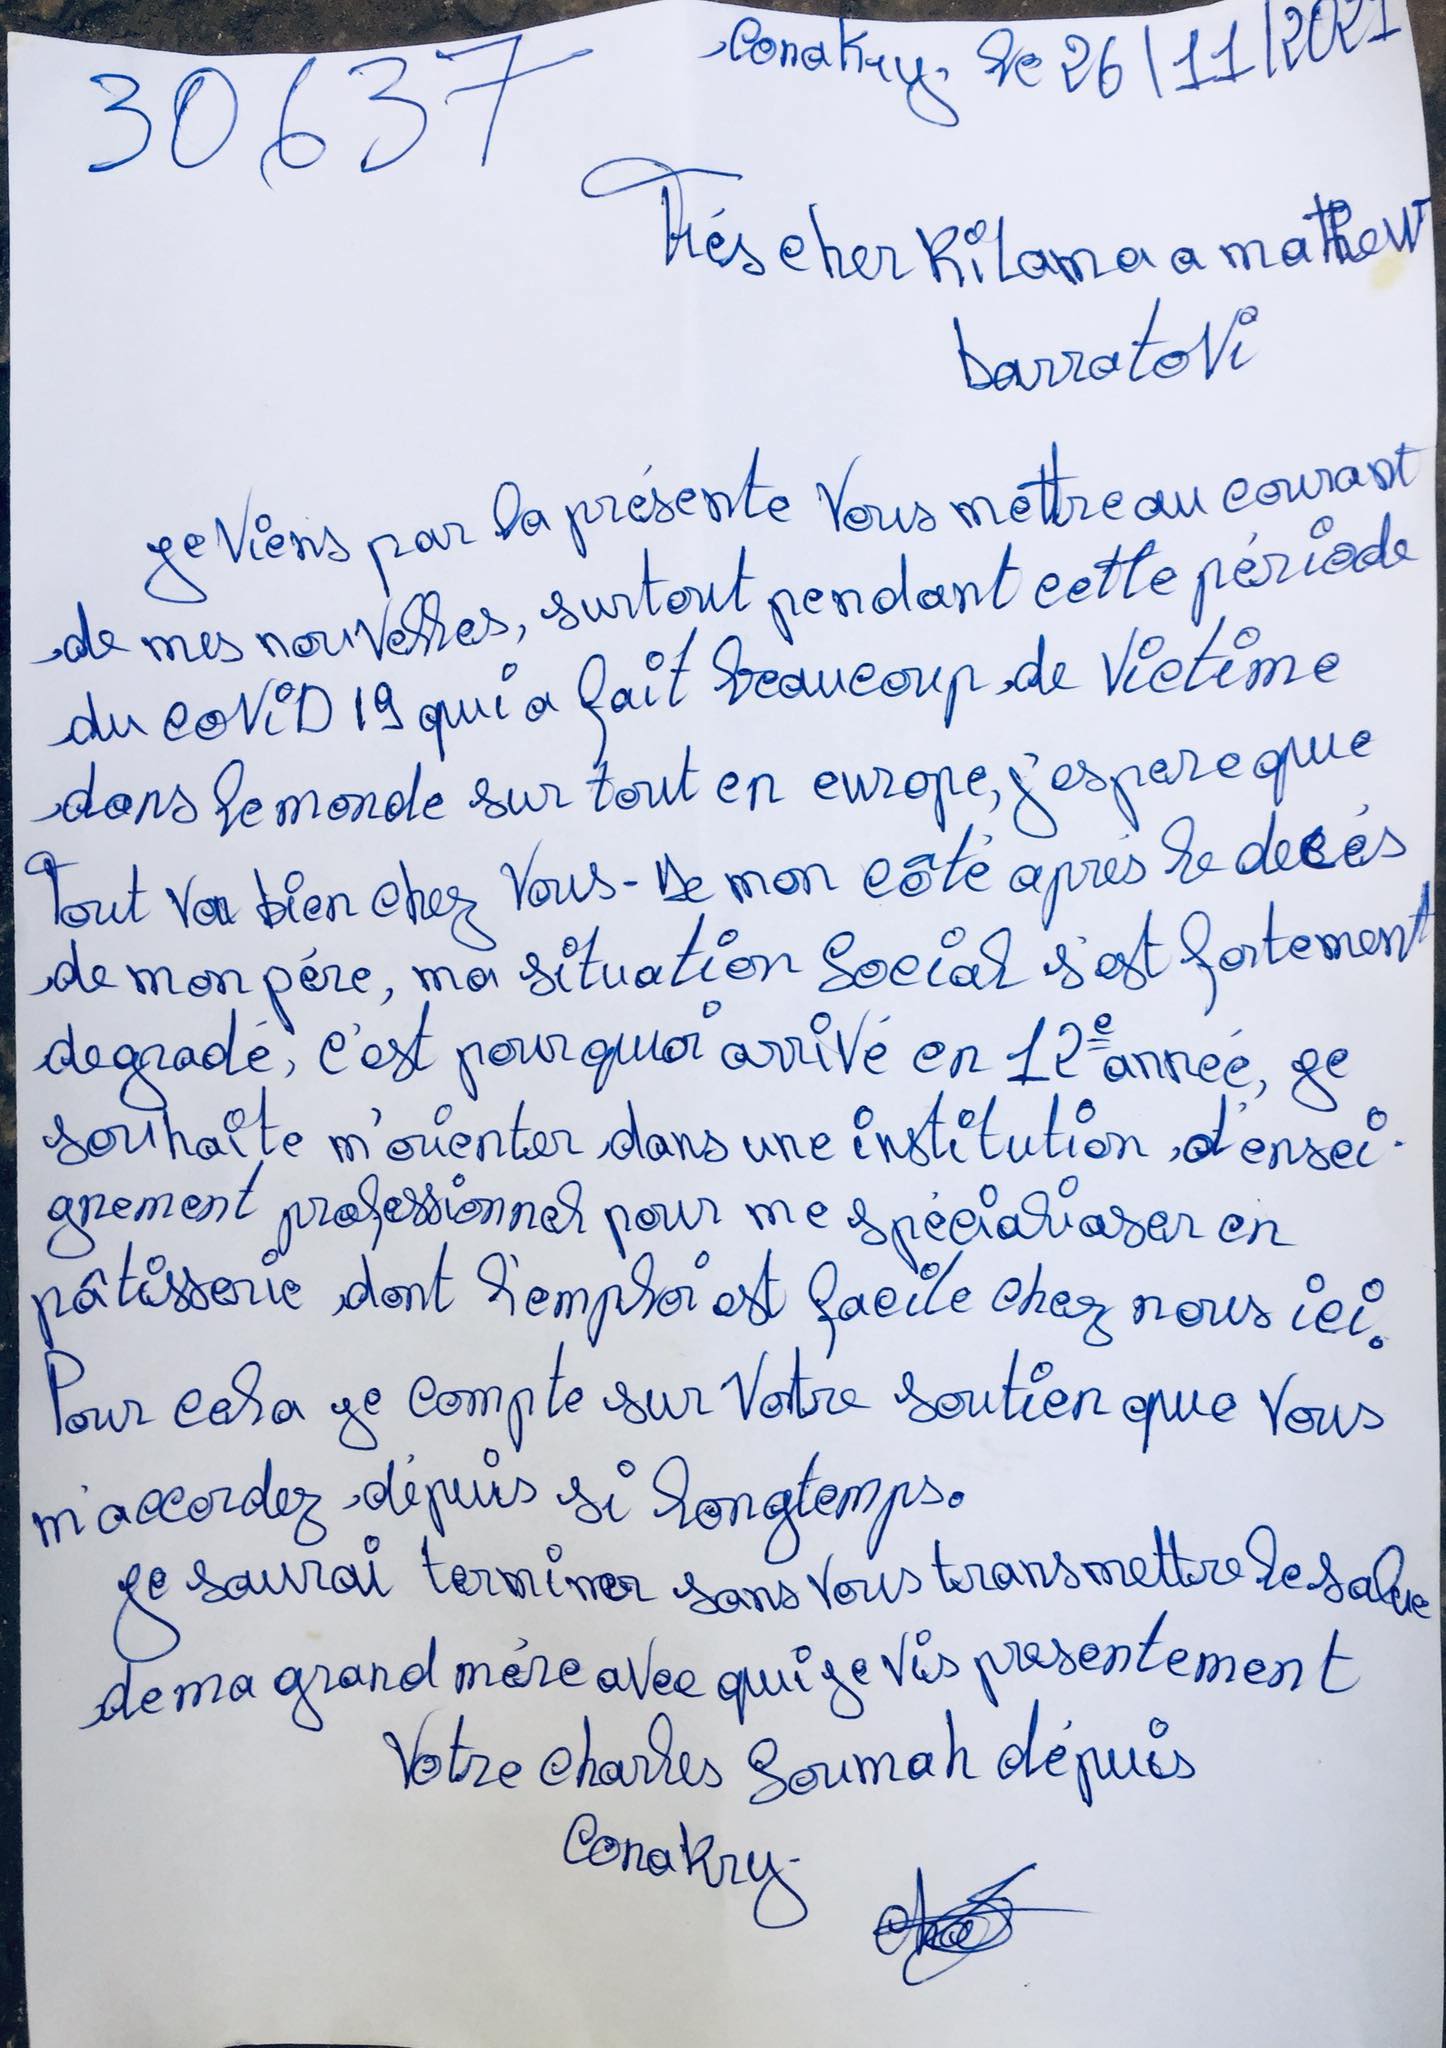 30637
Conakry. le 26/11/2021
Trés cher Kilama a mathew
barratoVi
je Viens par la présente Vous mettre au courant
de mes nouvelles, surtout pendant cette période
du coViD 19 qui a fait beaucoup de Victime
dans le monde sur tout en europe, j'espere que
Tout va bien chez Vous - De mon côté aprés le decés
de mon pére, ma situation Social s'est fortement
degradé, c'est pourquoi arrivé en 12e année, je
souhaite m'orienter dans une institution d'ensei-
gnement professionnel pour me spécialiaser en
pâtisserie dont l'emploi est facile chez nous ici.
Pour cela je compte sur Votre soutien que Vous
m'accordez dépuis si longtemps.
je saurai terminer sans Vous transmettre le salue
de ma grand mére avec qui je Vis presentement
Votre charles Soumah dépuis
Conakry-